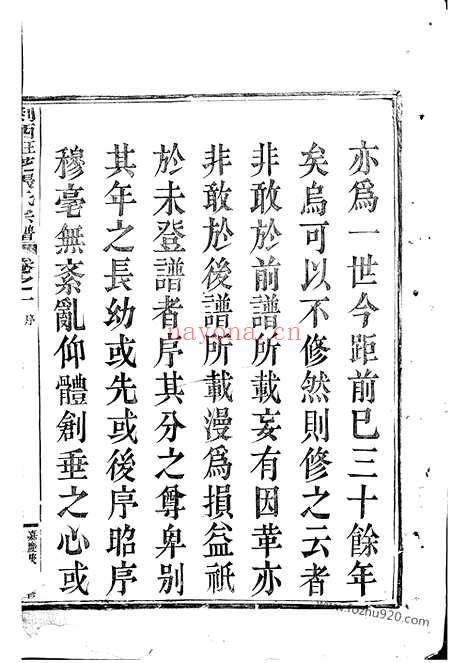 亦爲一世今距前已三十餘年
矣烏可以不修然則修之云者
非敢於前譜所載妄有因革亦
非敢於後譜所載漫爲損益祇
於未登譜者序其分之尊卑別
其年之長幼或先或後序昭序
穆毫無紊亂仰體創垂之心或
氏宗譜
卷之一
序
嘉慶
nayona.cn
www.fozhu920.com